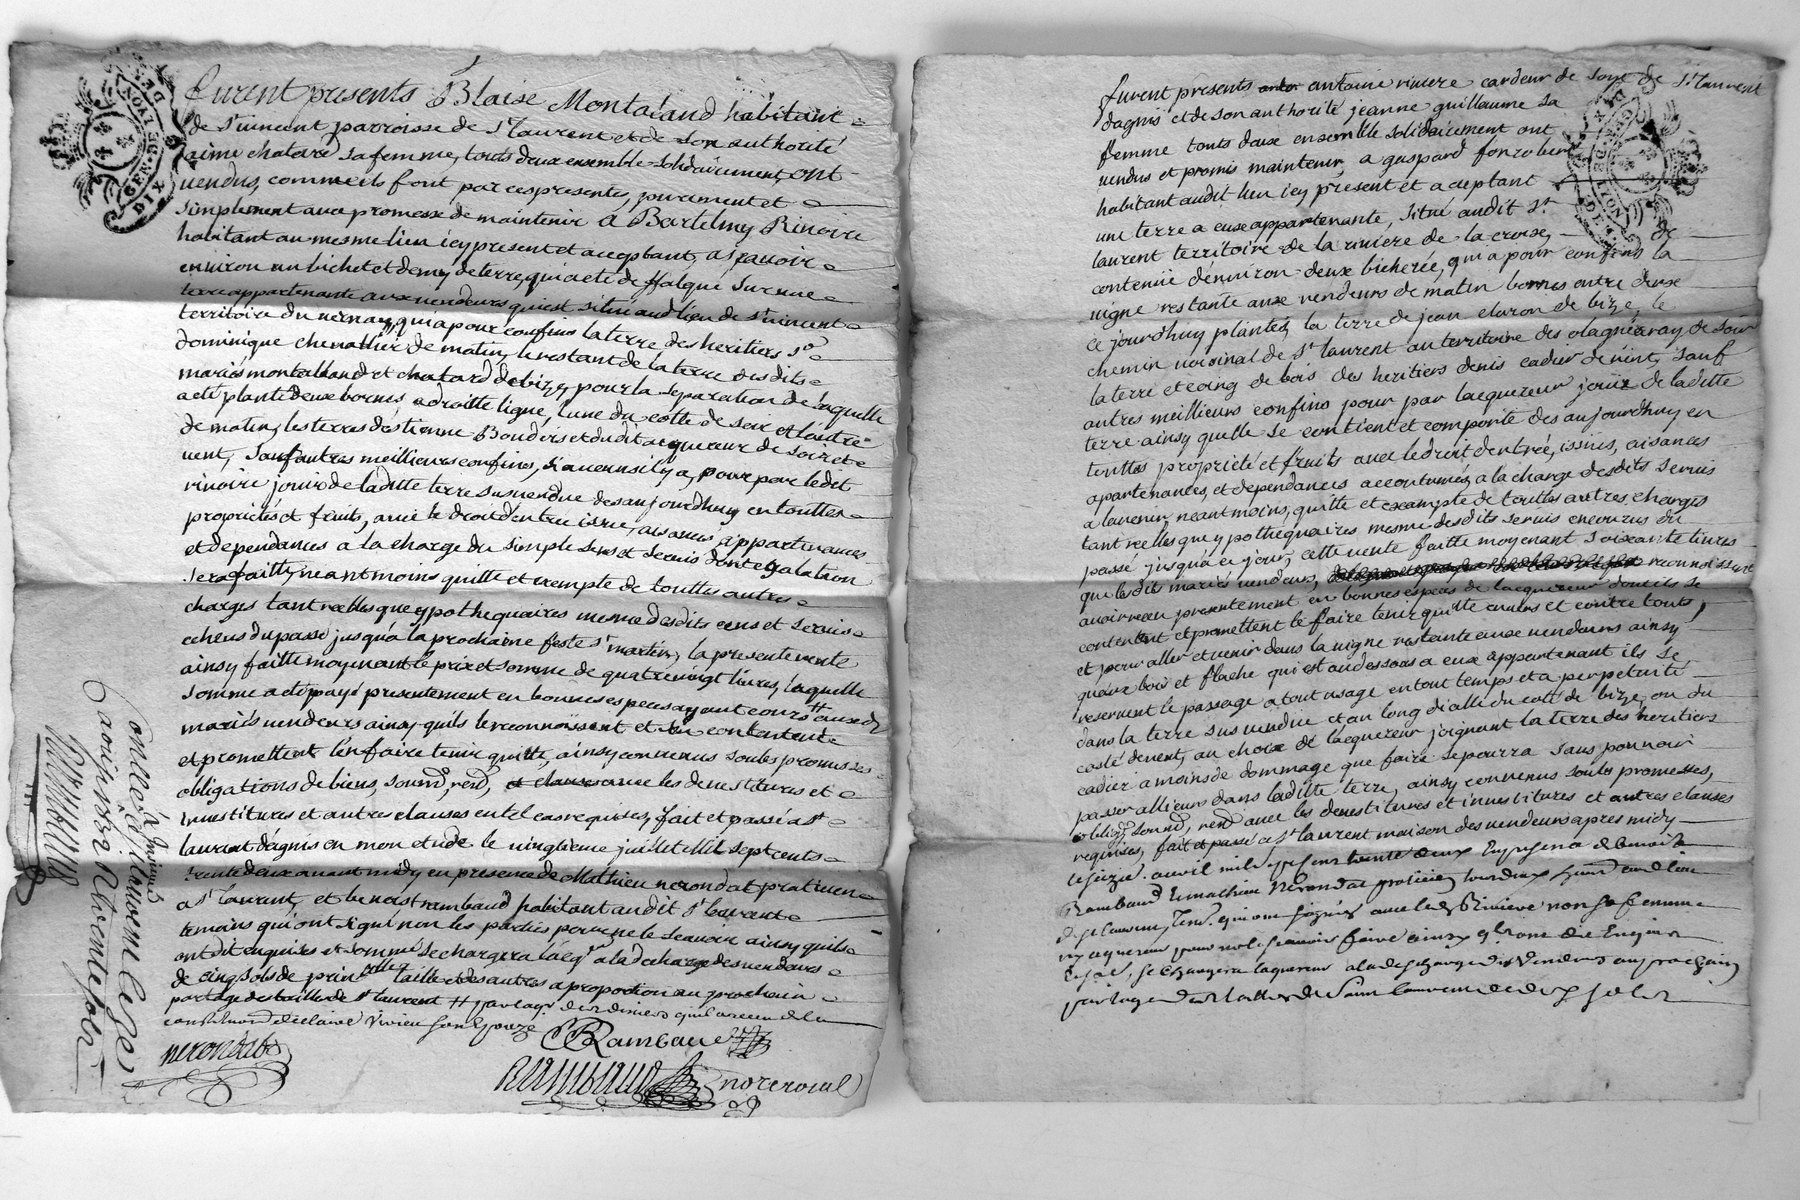 furent presents Blaise Montaland habitant
de St vincent parroisse de St Laurent et de son authorité
aimé chatard sa femme, touts deux ensemble solidairement, ont
vendus, comme ils font par ces presentes, purement et
simplement avec promesse de maintenir a Bartelmy Rinoire
habitant au mesme lieu icy present et acceptant, a sçavoir
environ un bichet et demy de terre, qui a eté de falqué sur une
terre appartenante aux vendeurs qui est situé aud lieu de St vincent
territoire du vernay, qui a pour confins la terre des heritiers Sr
dominique chevallier de matin, le restant de la terre desdits
mariés montalland et chatard de bize, pour la separation de laquelle
a eté planté deux bornes a droitte ligne, l'une du cotté de soir et l'autre
de matin, les terres d'estienne Boudois et dudit acquereur de soir et
vent, sauf autres meillieurs confins, si aucuns il y a, pour par ledit
rinoire jouir de laditte terre sus vendue des aujourdhuy en touttes
proprietés et fruits, avec le droit d'entrée issue, aisances appartenances
et dependances a la charge du simple sens et servis dont egalation
sera faitte, neantmoins quitte et exempte de touttes autres
charges tant reelles que ypothequaires mesme desdits cens et servis
echeus du passé jusqu'à la prochaine feste St martin, la presente vente
ainsy faitte moyenant le prix et somme de quatrevingt livres, laquelle
somme a eté payé presentement en bonnes especes ayant cours # auxd
mariés vendeurs ainsy qu'ils le reconnoissent et sen contentent
et promettent l'en faire tenir quitte, ainsy convenus soubs promesses
obligations de biens, soumd, rend, et clauses avec les devestitures et
investitures et autres clauses en tel cas requises, fait et passé a St
laurent d'agnis en mon etude le vingtieme juillet mil sept cents
trente deux avant midy en presence de Mathieu nerondat praticien
a St laurant, et benoist rambaud habitant audit St laurant
temoins qui ont signé non les parties pour ne le sçavoir ainsy quils
ont dit enquises et sommé se chargera lacqr a la decharge des vendeurs
de cinq sols de prin taille et des autres a proportion au prochain
partage des tailles de St laurent # par lacqr des deniers quil a receu de la
nerondat
CB Rambaud
Rambaud no re roial
Conllé à
St Laurent
furent presents antoine riviere cardeur de soye de St laurent
dagnis et de son authorité jeanne guillaume sa
femme touts deux ensemble solidairement ont
vendus et promis maintenir a gaspard fonrobert
habitant audit lieu icy present et aceptant
une terre a eux appartenante, situé audit St
laurent territoire de la riviere de la croise, de
contenüe d'environ deux bicherée, qui a pour confins la
vigne restante aux vendeurs de matin bornes entre deux
ce jourdhuy plantés, la terre de jean claron de bize, le
chemin voisinal de St laurent au territoire des olagnieravay de soir
la terre et coing de bois des heritiers denis cadier de vent, sauf
autres meillieurs confins pour par lacquereur jouir de laditte
terre ainsy quelle se contient et comporte des aujourdhuy en
touttes propriété et fruits avec le droit dentrée, issues, aisances
apartenances, et dependances accoutumés a la charge desdits servis
a lavenir neantmoins, quitte et exempte de touttes autres charges
tant reelles que ypothequaires mesme desdits servis encourus du
passé jusqua ce jour, cette vente faitte moyenant soixante livres
que lesdit mariés vendeurs, reconnoissent
avoir receu presentement en bonnes especes de lacquereur dont ils se
contentent et promettent le faire tenir quitte envers et contre touts,
et pour aller et venir dans la vigne restante aux vendeurs ainsy
quaux bois et flache qui est au dessous a eux appartenant ils se
reservent le passage a tout usage en tout temps et a perpetuité
dans la terre sus vendue et au long dicelle du coté de bize, ou du
costé de vent, au choix de lacquereur joignant la terre des heritiers
cadier a moins de dommage que faire se pourra sans pouvoir
passer allieurs dans laditte terre, ainsy convenus soubs promesses,
obligd, soumd, rend avec les devestitures et investitures et autres clauses
requises, fait et passé a St laurent maison des vendeurs apres midy
le seizie. avril mil sept cent trente deux en presence de benoist
Rambaud et mathieu Nerondat praticien tous deux